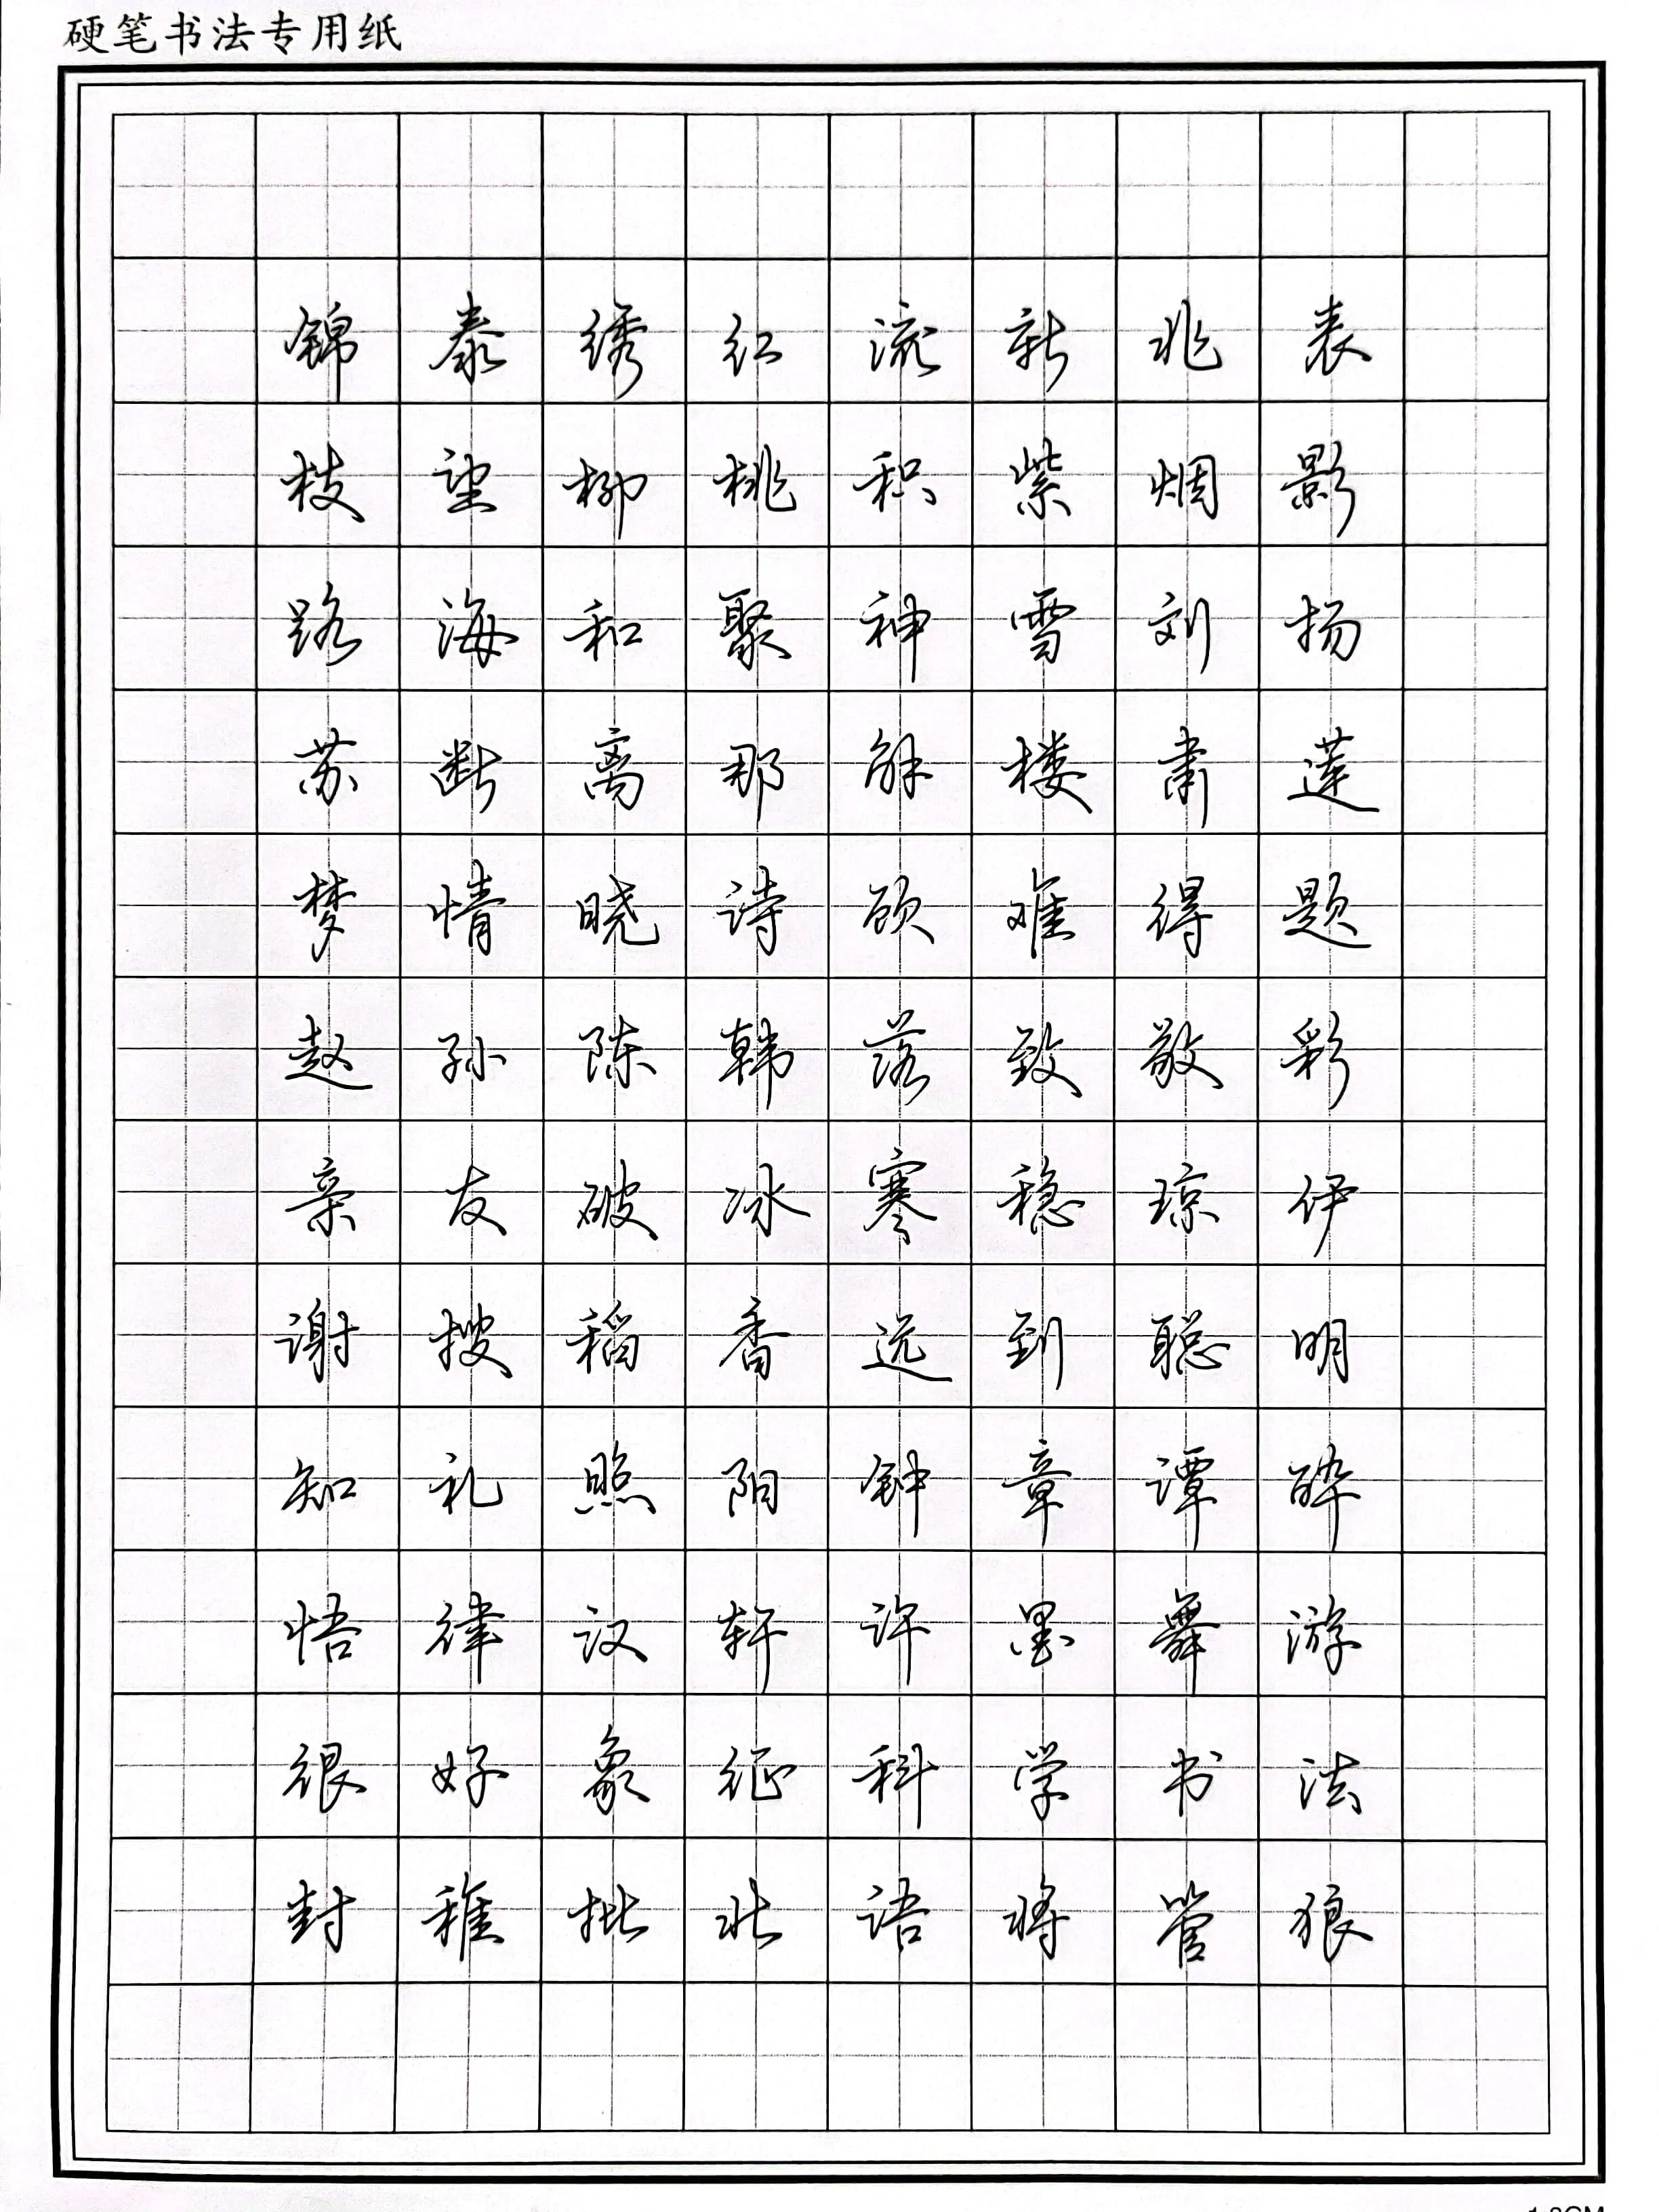 硬笔书法专用纸
锦泰绣红流新兆表
枝望柳桃积紫烟影
路海和聚神雪刘扬
苏断离那解楼肃莲
梦情晓诗顾难得题
赵孙陈韩落致敬彩
亲友破冰寒稳琼伊
谢搜稻香远到聪明
知礼照阳钟章谭醉
悟律汉轩许墨舞游
很好象征科学书法
封稚批北语将管狼
1.8CM